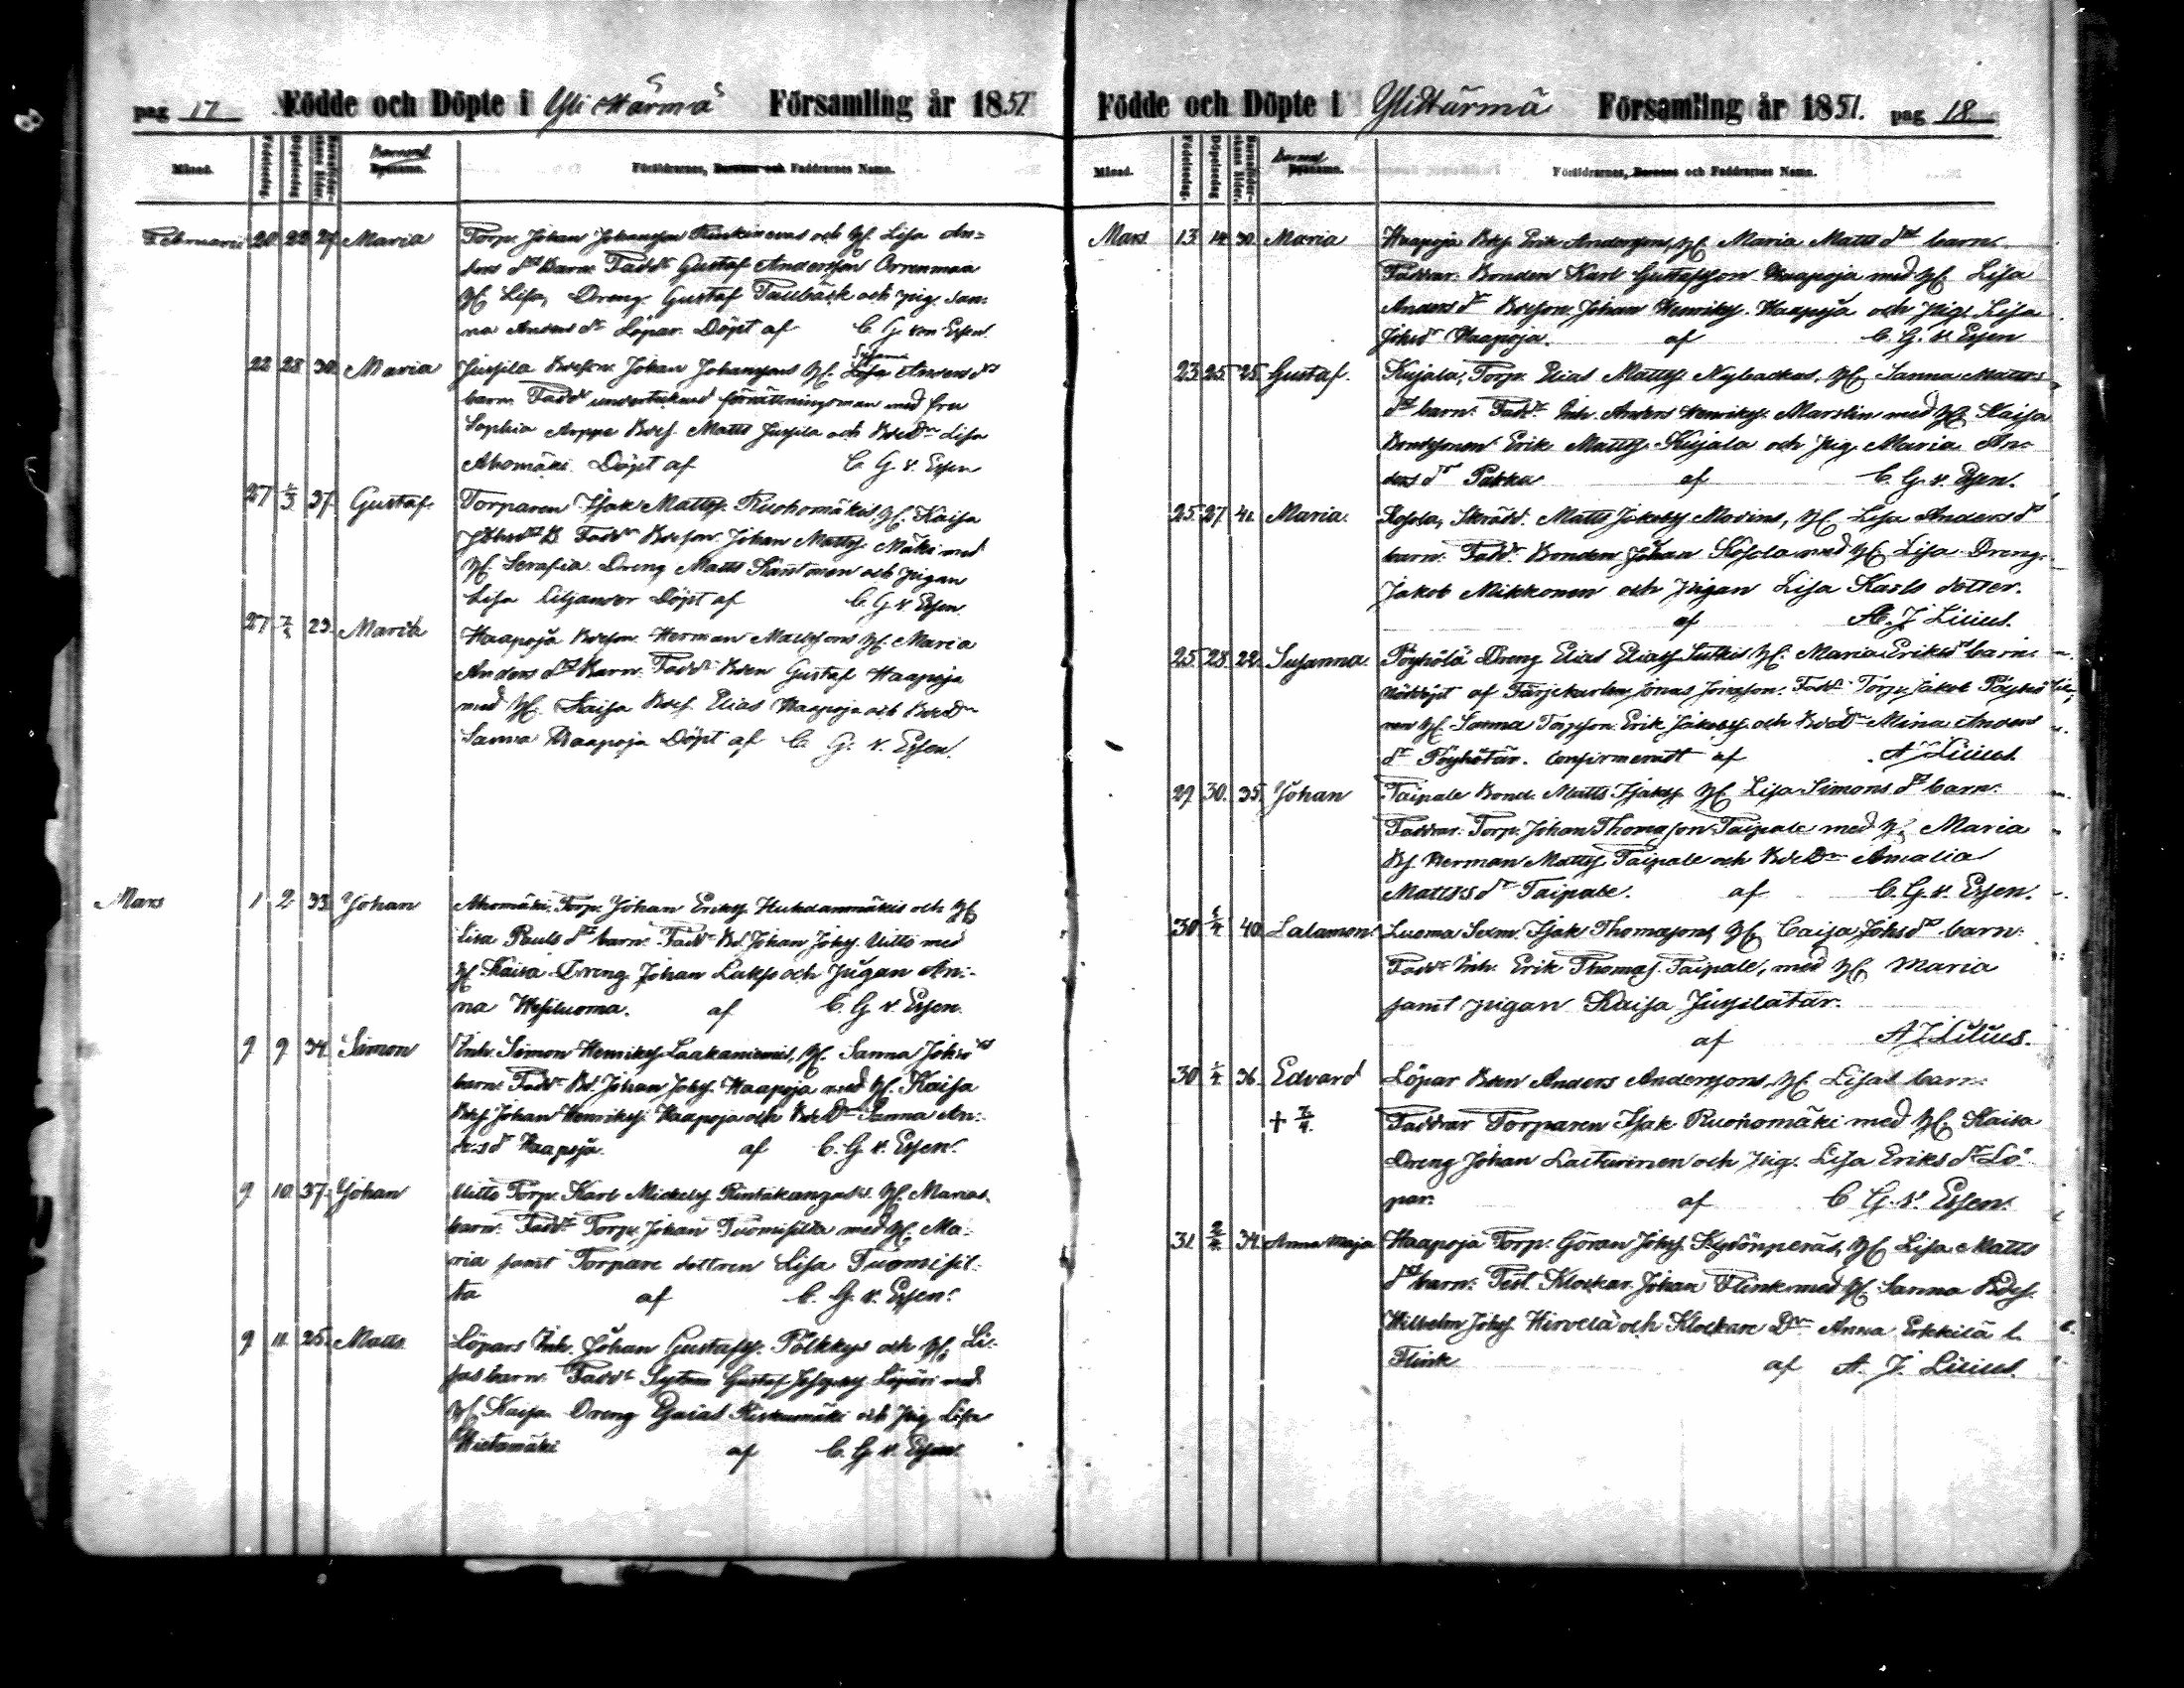 pag 17 Födde och Döpte i Yli Härmä Församling år 1851
Månad. Födelsedag Döpelsedag Barnaföderskans ålder. Barnens Dopnamn. Föräldrarnes, Barnens och Faddrarnes Namn.
Februarii 20 22 27 Maria Torp. Johan Johansson Rinkinevas och H. Lisa An=
ders dr Barn. Fadd. Gustaf Andersson Orrenmaa
H. Lisa, Dreng. Gustaf Tallbäck och pig. San=
na Anders dr Löpar. Döpt af C. G. von Essen.
22 28 30 Maria Jussila Bdeson. Johan Johanssons H. Lisa Susanna Anders drs
barn. Fadd. undertecknad förrättningsman med fru
Sophia Arppe Bdes. Matts Jussila och BdeDr Lisa
Ahomäki. Döpt af C. G. v. Essen
27 2/3 37 Gustaf. Torparen Isak Mattss. Ruohomäkis, H. Kaisa
Johsdr B. Fadd. Bdeson. Johan Mattss. Mäki med
H. Serafia. Dreng Matts Kantonen och pigan
Lisa Liljander Döpt af C. G. v. Essen.
27 7/3 23. Maria Haapoja Bdeson. Herman Mattssons H. Maria
Anders dr Barn. Fadd. Bden Gustaf Haapoja
med H. Kaisa Bdes. Elias Haapoja och BdeDr
Sanna Haapoja Döpt af C. G. v. Essen.
Mars 1 2 33 Johan Ahomäki. Torp. Johan Erikss. Huhdanmäkis och H.
Lisa Pauls dr barn. Fadd. Bd. Johan Johss. Uitto med
H. Kaisa Dreng Johan Lakso och pigan An:-
na Wesiluoma. af C. G. v. Essen.
9 9 34 Simon Inh. Simon Henrikss. Laakaniemis, H. Sanna Johsdrs
barn. Fadd. Bd. Johan Johss. Haapoja med H. Kaisa
Bdes Johan Henrikss. Haapoja och BdeDr Sanna An:
ders dr Haapoja. af C. G. v. Essen.
9 10 37. Johan Uitto Torp. Karl Mickelss. Rintakangas H. Marias
barn. Fadd. Torp. Johan Tuomisilta med H. Ma:
ria samt Torpare dottren Lisa Tuomisil:
ta af C. G. v. Essen.
9 11. 25. Matts Löpars Inh. Johan Gustafss. Pölkkys och H. Li:
sas barn. Fadd. Sytn. Gustaf Josephss Löpari med
H. Kaisa Dreng Esaias Riskumäki och pig. Lisa
Hietamäki. af C. G. v. Essen.
Födde och Döpte i Yli Härmä Församling år 1851. pag 18.
Månad. Födelsedag. Döpelsedag Barnaföderskans ålder. Barnens Dopnamn. Föräldrarnes, Barnens och Faddrarnes Namn.
Mars 13 14 30. Maria Haapoja Bdes. Erik Anderssons, H. Maria Matts dr barn.
Faddrar. Bonden Karl Gustafsson Haapoja med H. Lisa
Anders dr Bdeson, Johan Henrikss. Haapoja och pig. Lisa
Johsdr Haapoja. af C. G. v. Essen
23 25 25 Gustaf. Kujala, Torp. Elias Mattss. Nybackas, H. Sanna Matts
dr barn. Fadd. Inh. Anders Henrikss. Marslin med H. Kaisa
Bondsonen Erik Mattss. Kujala och pig. Maria An:
ders dr Pukka af C. G. v. Essen.
25. 27 41. Maria. Kosola, Skrädd. Matts Jakobss. Modins, H. Lisa Anders dr
barn. Fadd. Bonden Johan Kosola med H. Lisa Dreng.
Jakob Mikkonen och pigan Lisa Karls dotter.
af A. J. Lilius.
25. 28. 22. Susanna. Pöyhölä Dreng Elias Eliass. Sutkis H. Maria Eriksd barn.
Nöddöpt af Färjekarlen Jonas Jonasson. Fadd. Torp. Jakob Pöyhö
nen H. Sanna Torpson. Erik Jakobss. och BdeDr Mina Anders
dr Pöyhötär. Confirmeradt af A J Lilius.
29. 30. 35. Johan Taipale Bond. Matts Isakss. H. Lisa Simons dr barn.
Faddrar. Torp. Johan Thomasson Taipale med H. Maria
Bs. Herman Mattss. Taipale och BdeDr Amalia
Matts dr Taipale. af C. G. v. Essen.
30 6/4 40. Salamon. Luoma Sexm. Isak Thomassons, H. Caisa Johsdr barn.
Fadd. Inh. Erik Thomass. Taipale, med H. Maria
samt pigan Kaisa Jussilatar.
af A J Lilius.
30 1/4 36. Edvard Löpar Bden Anders Anderssons, H. Lisas barn.
† 7/4. Faddrar Torparen Isak Ruohomäki med H. Kaisa
Dreng Johan Laiturinen och pig. Lisa Eriks dr Lö:
par. af C G. v. Essen.
31. 2/4 34. Anna Maja Haapoja Torp. Göran Johss. Kydönperäs, H. Lisa Matts
dr barn. Test. Klockar. Johan Flink med H. Sanna Bdes.
Wilhelm Johss. Hirvelä och Klockare Dr Anna Erkkilä l.
Flink af A. J. Lilius.